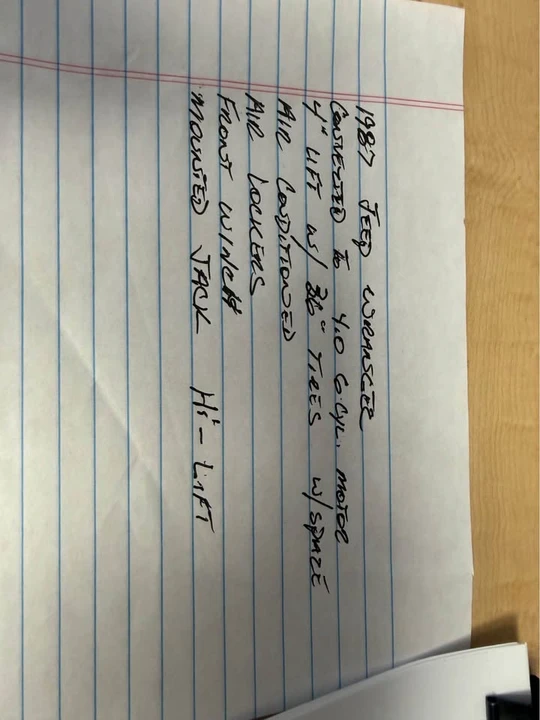 1987 JEEP WRANGLER
CONVERTED TO 4.0 6 CYL. MOTOR
4" LIFT W/ 36" TIRES W/SPARE
AIR CONDITIONED
AIR LOCKERS
FRONT WINCH
MOUNTED JACK Hi-LIFT